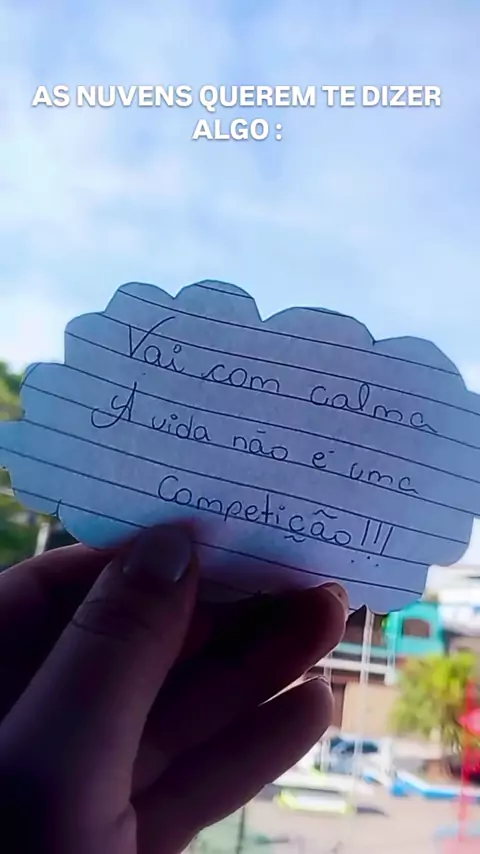 AS NUVENS QUEREM TE DIZER
ALGO :
Vai com calma
A vida não é uma
Competição!!!